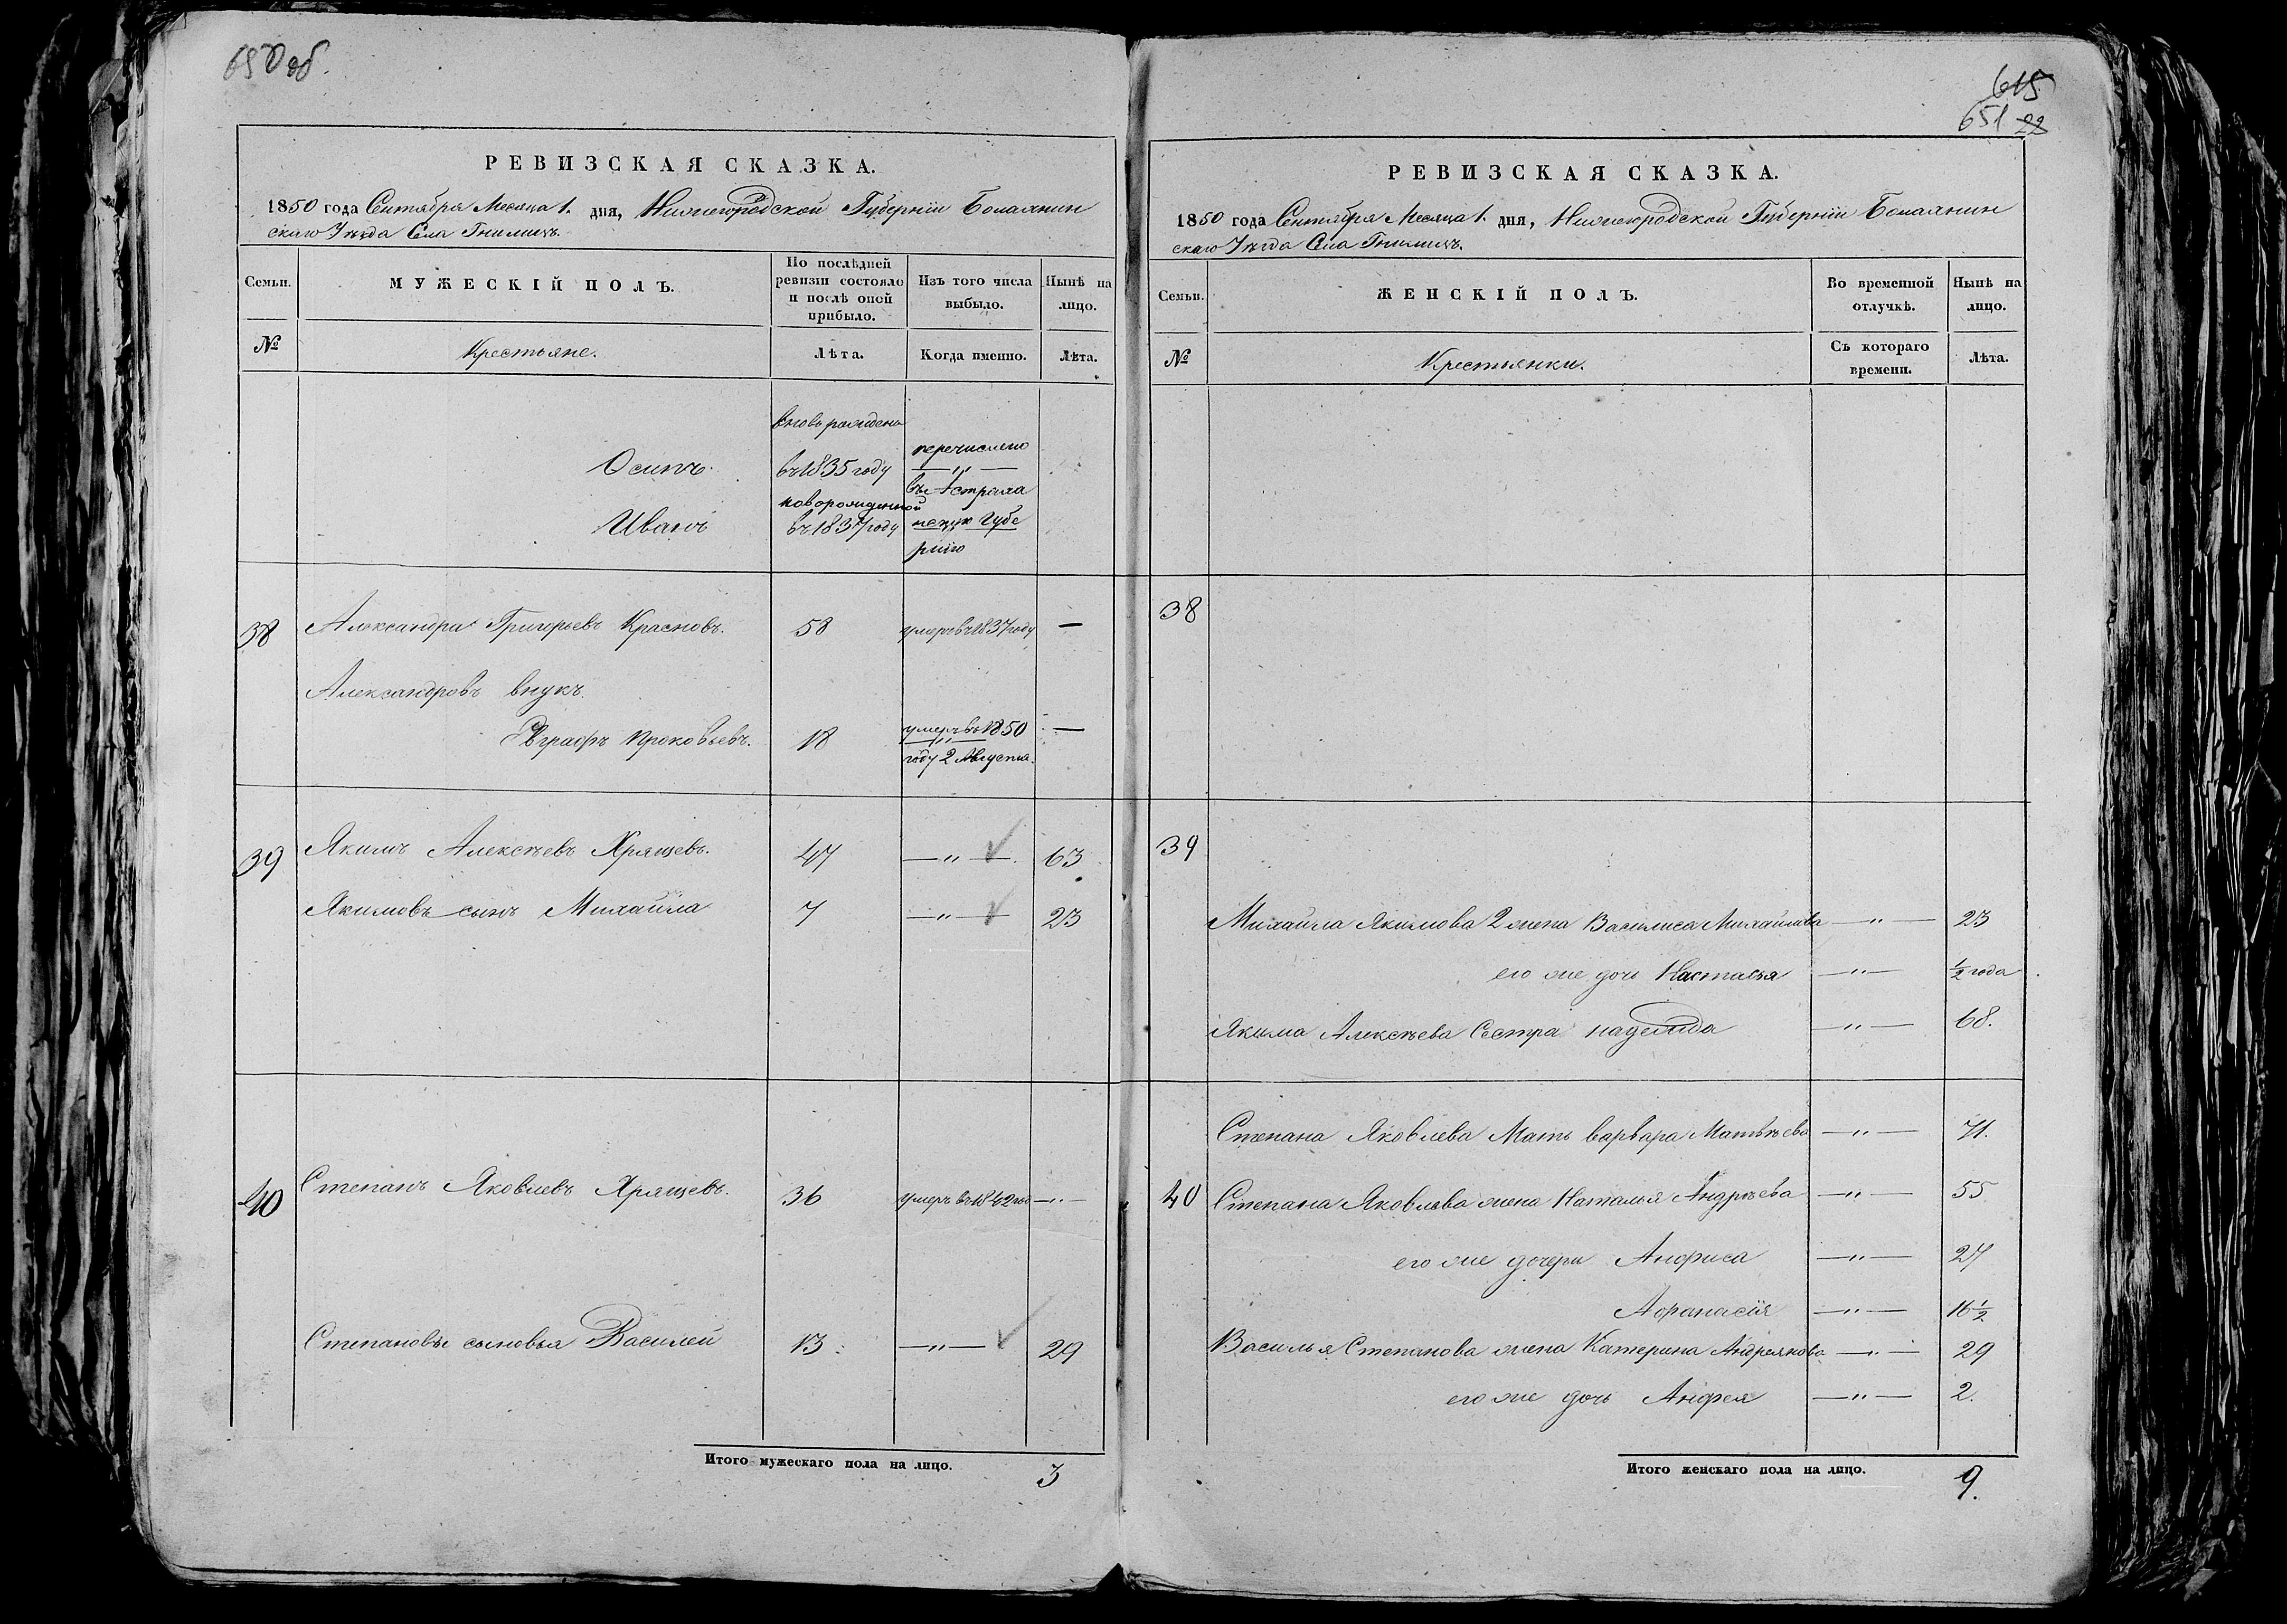 650 об.
РЕВИЗСКАЯ СКАЗКА.
1850 года Сентября Месяца 1. дня, Нижегородской Губернїи Балахнин
скаго Уѣзда Села Гнилицъ.
Семьи. МУЖЕСКІЙ ПОЛЪ. По послѣдней ревизіи состояло и послѣ оной прибыло. Изъ того числа выбыло. Нынѣ на лицо.
№ Крестьяне. Лѣта. Когда именно. Лѣта.
вновь рожденъ
перечислено
Осипъ. въ 1835 году — „ —
въ Астраха
новорожденной
Иванъ въ 1837 году нскую Губе
рнїю
38 Александра Григорьевъ Красновъ. 58 умеръ въ 1837 году —
Александровъ внукъ.
Евграфъ Прокофьевъ. 18 умеръ въ 1850 —
году 2 Августа.
39 Якимъ Алексѣевъ Хрящевъ. 47 — „ — 63
Якимовъ сынъ Михайла 7 — „ — 23
40 Степанъ Яковлевъ Хрящевъ. 36 умеръ въ 1842 год — „ —
Степановы сыновья Василей 13 — „ — 29
Итого мужескаго пола на лицо. 3
615
651 22
РЕВИЗСКАЯ СКАЗКА.
1850 года Сентября Месяца 1. дня, Нижегородской Губернїи Балахнин
скаго Уѣзда Села Гнилицъ.
Семьи. ЖЕНСКІЙ ПОЛЪ. Во временной отлучкѣ. Нынѣ на лицо.
№ Крестьянки. Съ котораго времени. Лѣта.
38
39
Михайла Якимова 2 жена Василиса Михайлова — „ — 23
его же дочь Настасья — „ — ½ года
Якима Алексѣева Сестра надежда — „ — 68.
Степана Яковлева Мать варвара Матвѣева — „ — 71.
40 Степана Яковлева жена Наталья Андрѣева — „ — 55
его же дочери Анфиса — „ — 27
Афанасїя — „ — 16 ½
Василья Степанова жена Катерина Андреянова — „ — 29
его же дочь Анфея — „ — 2.
Итого женскаго пола на лицо. 9.